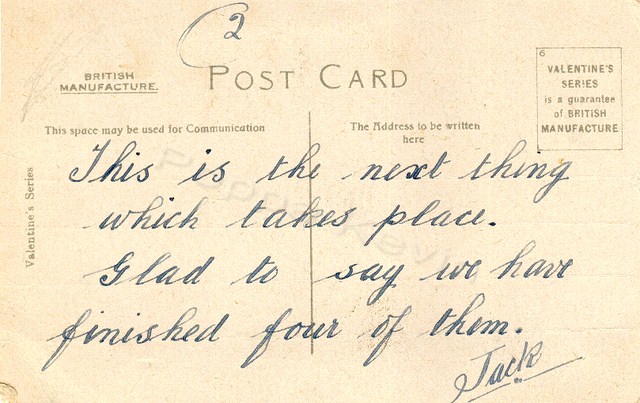 2
BRITISH
MANUFACTURE.
POST CARD
6
VALENTINE'S
SERIES
is a guarantee
of BRITISH
MANUFACTURE
This space may be used for Communication
The Address to be written
here
Valentine's Series
This is the next thing
which takes place.
Glad to say we have
finished four of them.
Jack